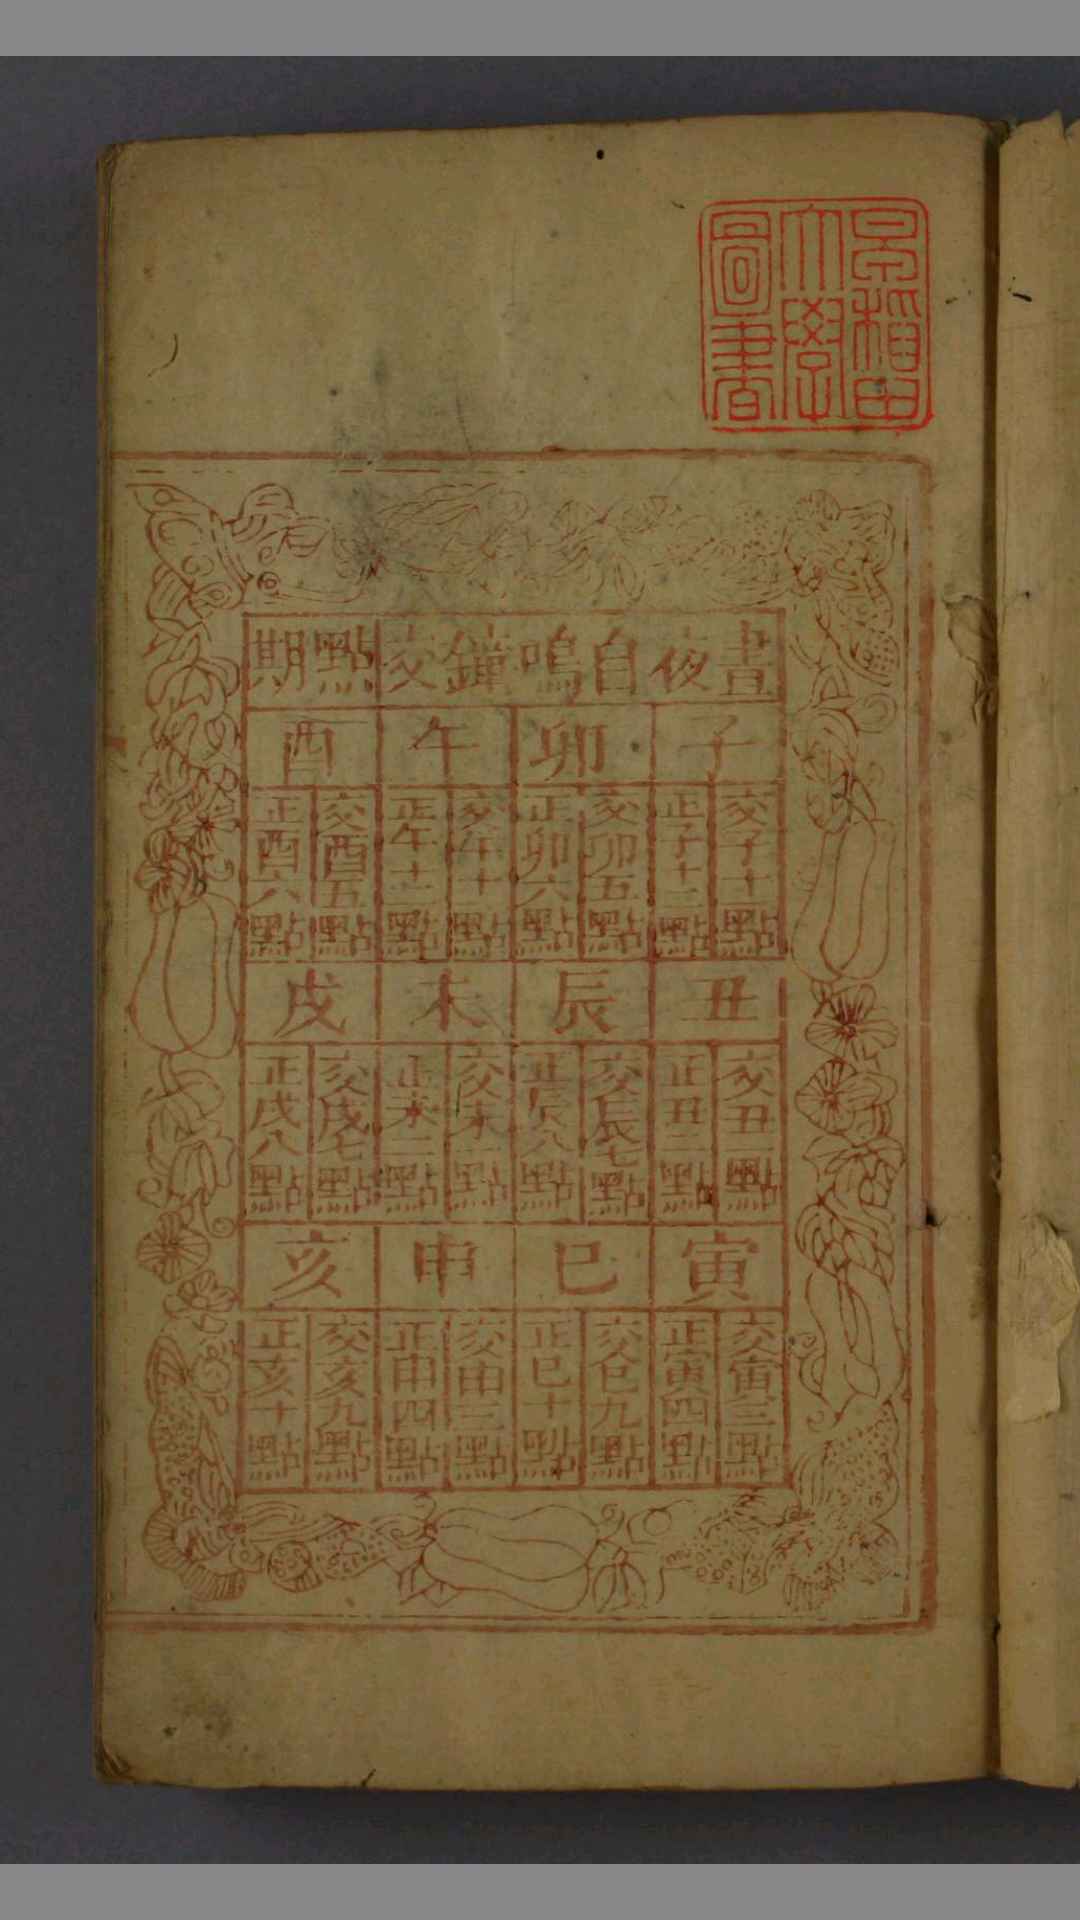 早稻田
大學
圖書
晝夜自鳴鐘交點期
子
卯
午
酉
交子十一點
正子十二點
交卯五點
正卯六點
交午十一點
正午十二點
交酉五點
正酉六點
丑
辰
未
戌
交丑一點
正丑二點
交辰七點
正辰八點
交未一點
正未二點
交戌七點
正戌八點
寅
巳
申
亥
交寅三點
正寅四點
交巳九點
正巳十點
交申三點
正申四點
交亥九點
正亥十點